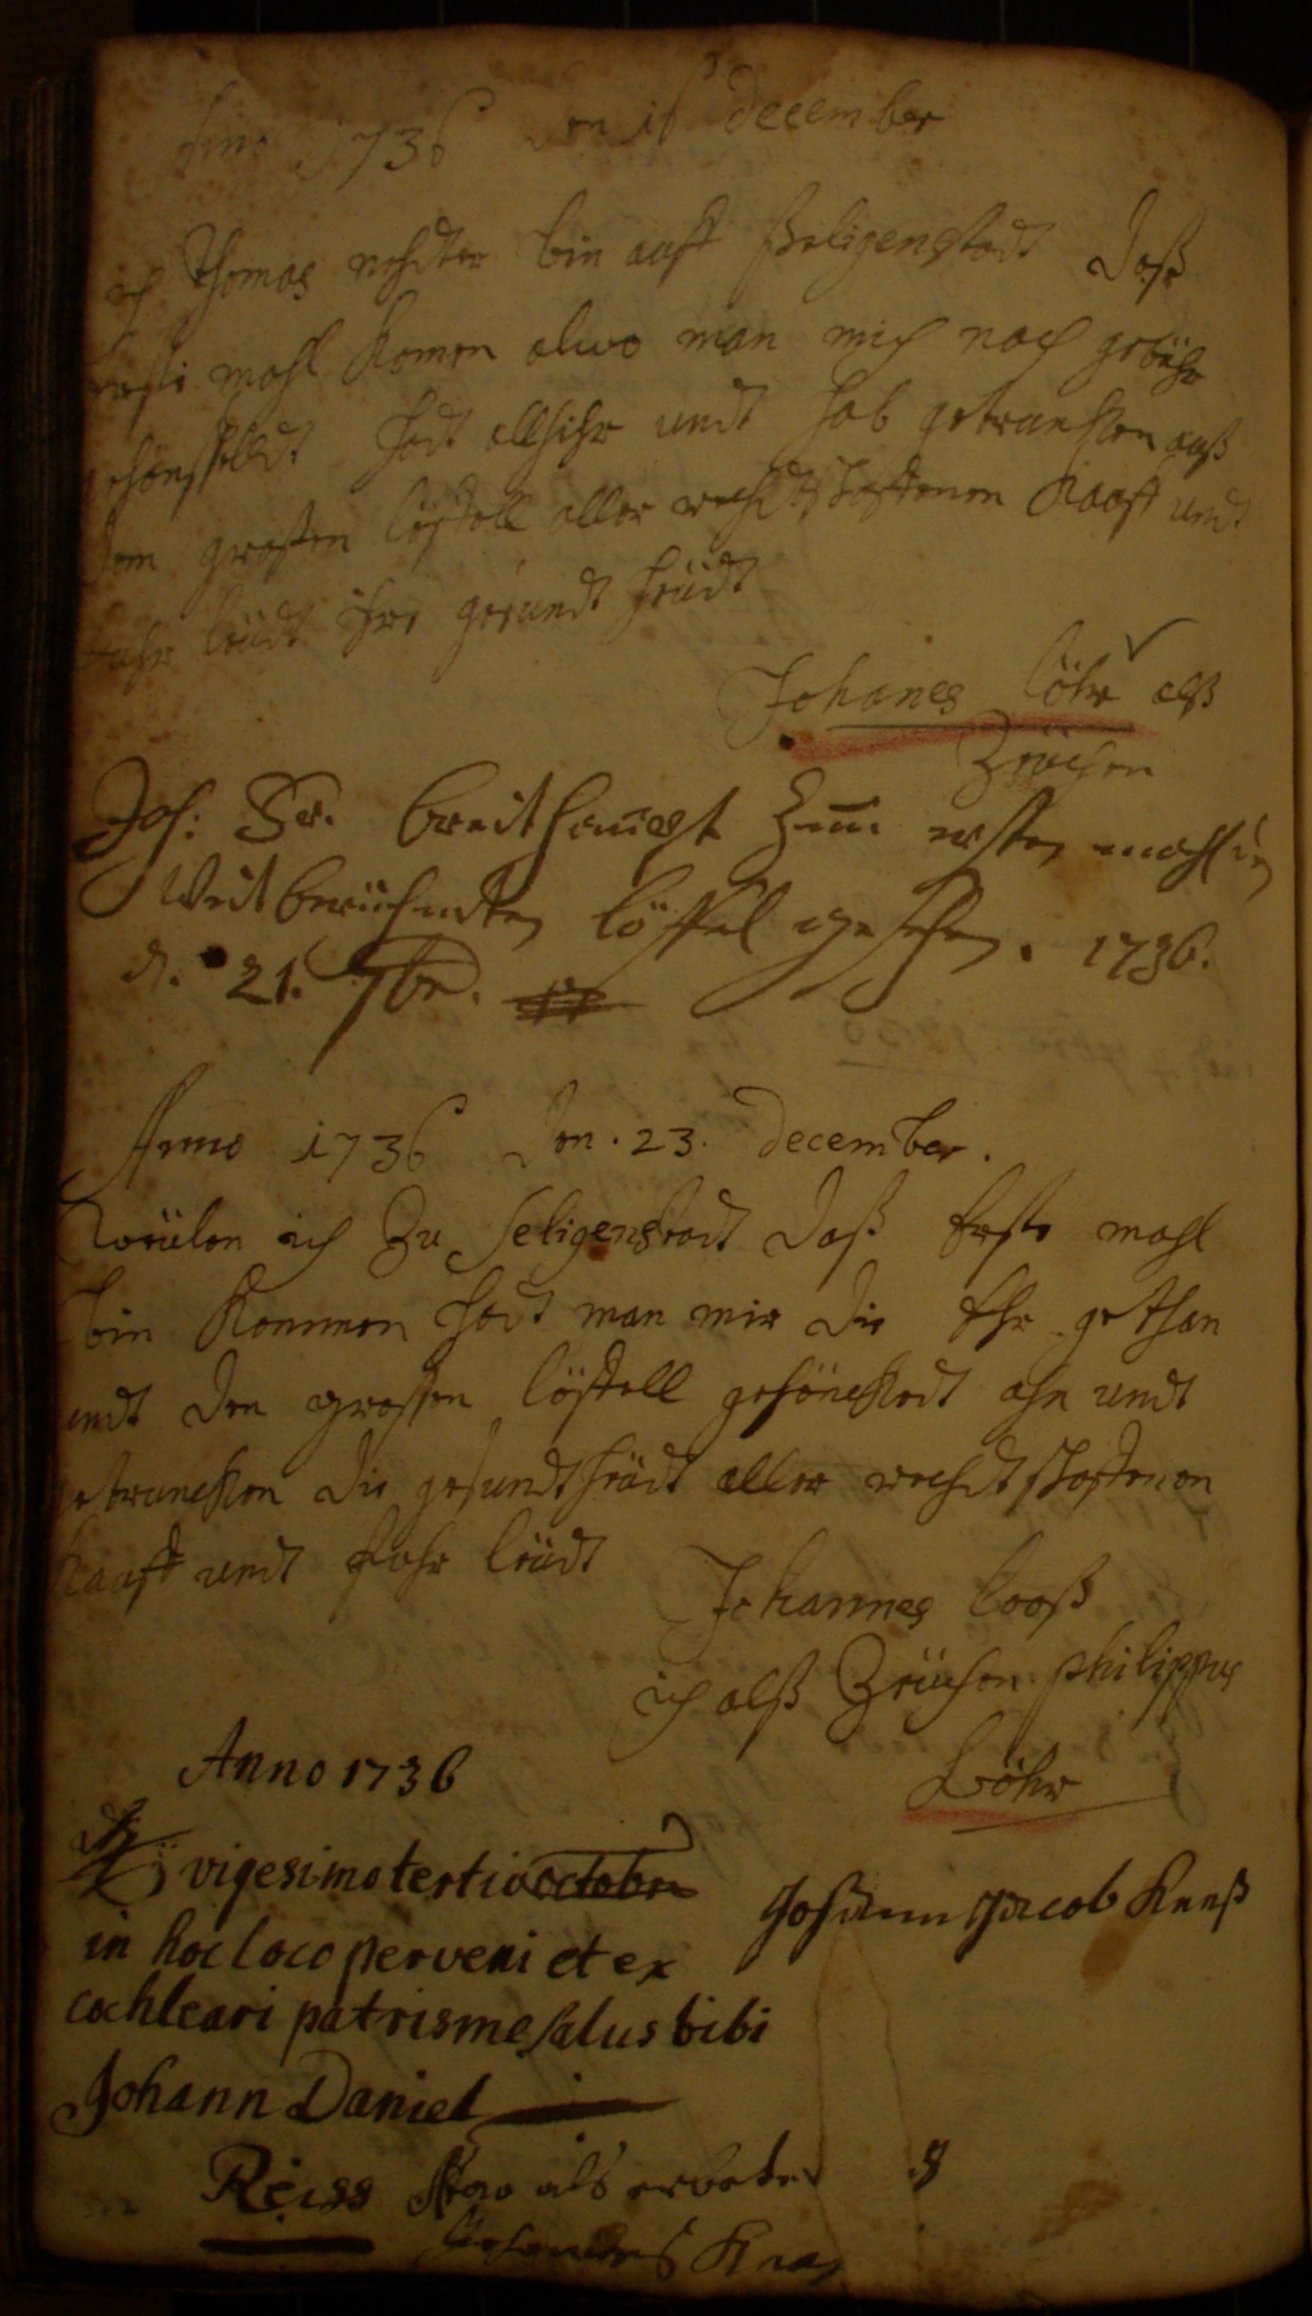 Anno 1736 den 16 December
ich Thomas rechter bin auff Seligenstadt daß
Erste mahl komen alwo man mich nach gebühr
gehänsselldt hadt allhihr undt hab getruncken auß
dem großen Löffell aller rechdtschaffenen Kauff undt
fuhr leüdt ihre gesundtheüdt
Johanes Löhr alß
Zeüchen
Joh: Fr. Breithaupt Zum ersten mahl in
Weit berühmten Löffel gesehen. 1736.
d. 21. 7br.
Anno 1736 den. 23. December.
weülen ich Zu Seligenstadt daß Erste mahl
bin Kommen hadt man mir die Ehr gethan
undt den grossen Löffell gehönckedt ahn undt
getruncken die gesundtheüdt aller rechdtschaffenen
Kauff undt fuhr leüdt
Johannes Looß
ich alß Zeüchen philippus
Löhr
Anno 1736
vigesimo tertio octobr
in hoc loco perveni et ex
cochleari patris me salus bibi
Johann Daniel
Reiss als erbetener
Johann Jacob Kneß
Johannes